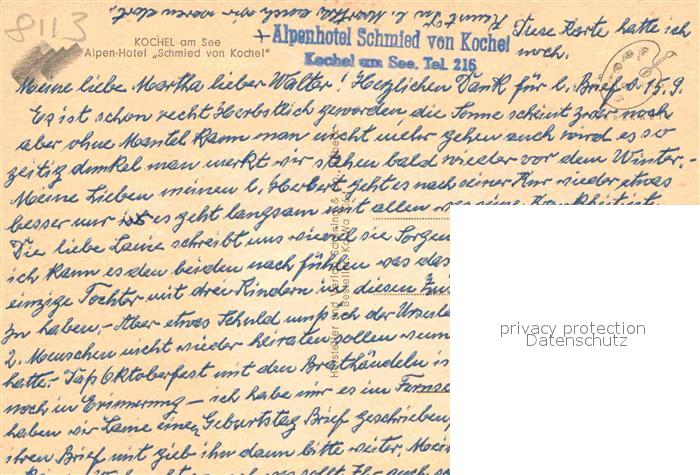 8113
Kennt Ihr l. Martha, auch wir waren dort.
Diese Karte hatte ich
noch.
KOCHEL am See
Alpen-Hotel „Schmied von Kochel"
Alpenhotel Schmied von Kochel
Kochel am See. Tel. 216
Meine liebe Martha lieber Walter! Herzlichen Dank für l. Brief v. 15.9.
Es ist schon recht Herbstlich geworden, die Sonne scheint zwar noch
aber ohne Mantel kann man nicht mehr gehen auch wird es so
zeitig dunkel man merkt wir stehen bald wieder vor dem Winter. -
Meine Lieben meinen l. Herbert geht es nach seiner Kur wieder etwas
besser nur es geht langsam mit allen was seine Krankheit ist
Die liebe Laine schreibt uns wieviel sie Sorgen
ich kann es den beiden nach fühlen was das
einzige Tochter mit drei Kindern in diesen
zu haben. - Aber etwas Schuld muß ich der
2. Menschen nicht wieder heiraten sollen wenn
hatte. - Das Oktoberfest mit den Brathändeln is
noch in Erinnerung - ich habe nur es im Fernse
haben wir Laine einen Geburtstag Brief geschrieben,
ihren Brief mit gieb ihn dann bitte weiter. Mein
Hersteller und Verlag
Bestell-Nr.
privacy protection
Datenschutz